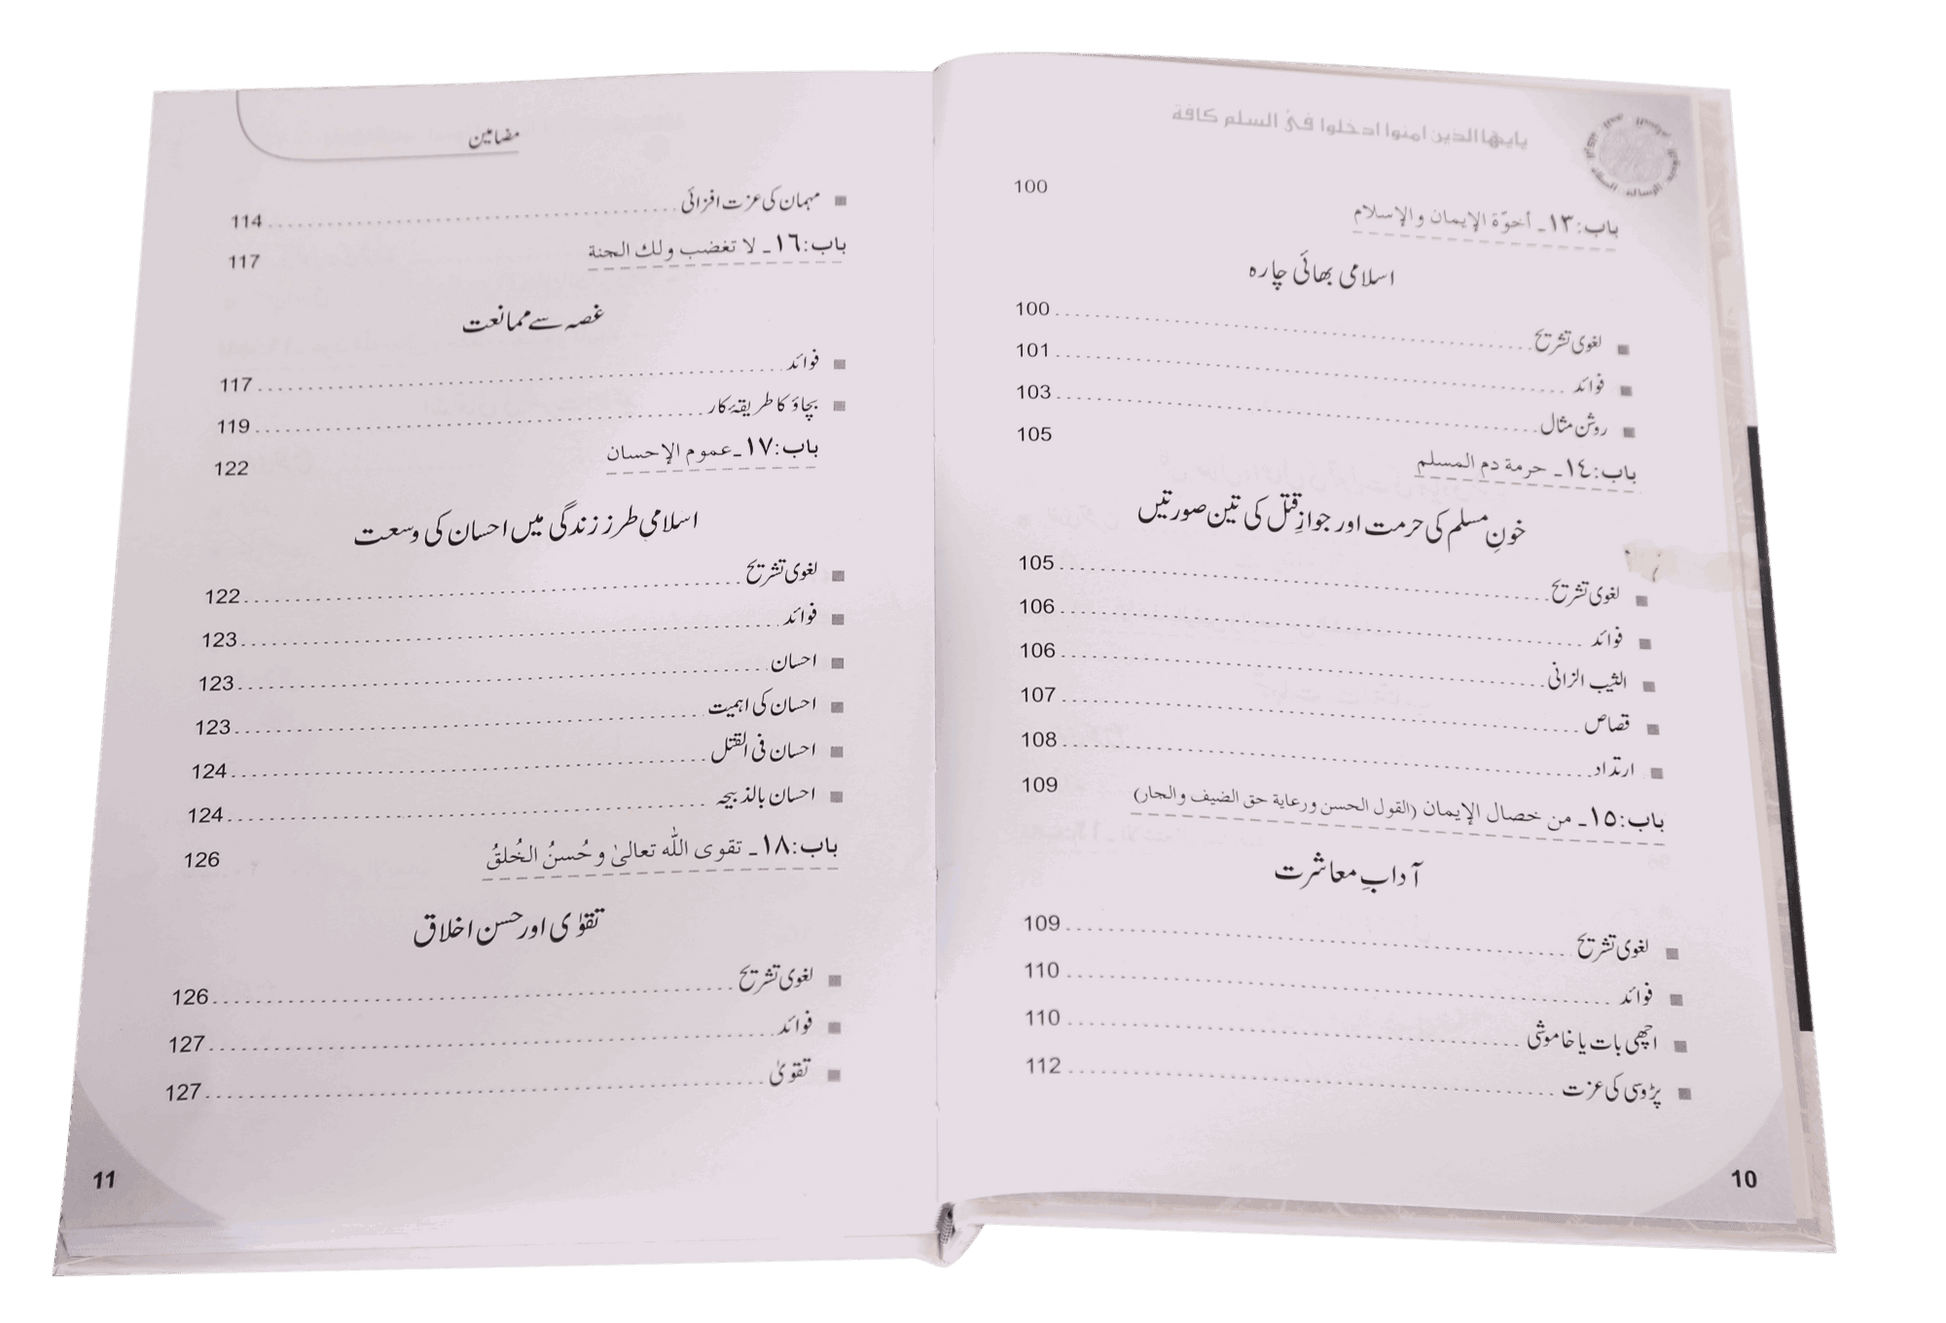 يايها الذين امنوا ادخلوا في السلم كافة
باب:١٣۔ أخوّة الإيمان والإسلام 100
اسلامی بھائی چارہ
لغوی تشریح 100
فوائد 101
روشن مثال 103
باب:١٤۔ حرمة دم المسلم 105
خونِ مسلم کی حرمت اور جوازِ قتل کی تین صورتیں
لغوی تشریح 105
فوائد 106
الثیب الزانی 106
قصاص 107
ارتداد 108
باب:١٥۔ من خصال الإيمان (القول الحسن ورعاية حق الضيف والجار) 109
آدابِ معاشرت
لغوی تشریح 109
فوائد 110
اچھی بات یا خاموشی 110
پڑوسی کی عزت 112
10
مضامین
مہمان کی عزت افزائی 114
باب:١٦۔ لا تغضب ولك الجنة 117
غصہ سے ممانعت
فوائد 117
بچاؤ کا طریقۂ کار 119
باب:١٧۔ عموم الإحسان 122
اسلامی طرز زندگی میں احسان کی وسعت
لغوی تشریح 122
فوائد 123
احسان 123
احسان کی اہمیت 123
احسان فی القتل 124
احسان بالذبیحہ 124
باب:١٨۔ تقوى اللّٰه تعالىٰ وحُسنُ الخُلقُ 126
تقوٰی اور حسن اخلاق
لغوی تشریح 126
فوائد 127
تقویٰ 127
11